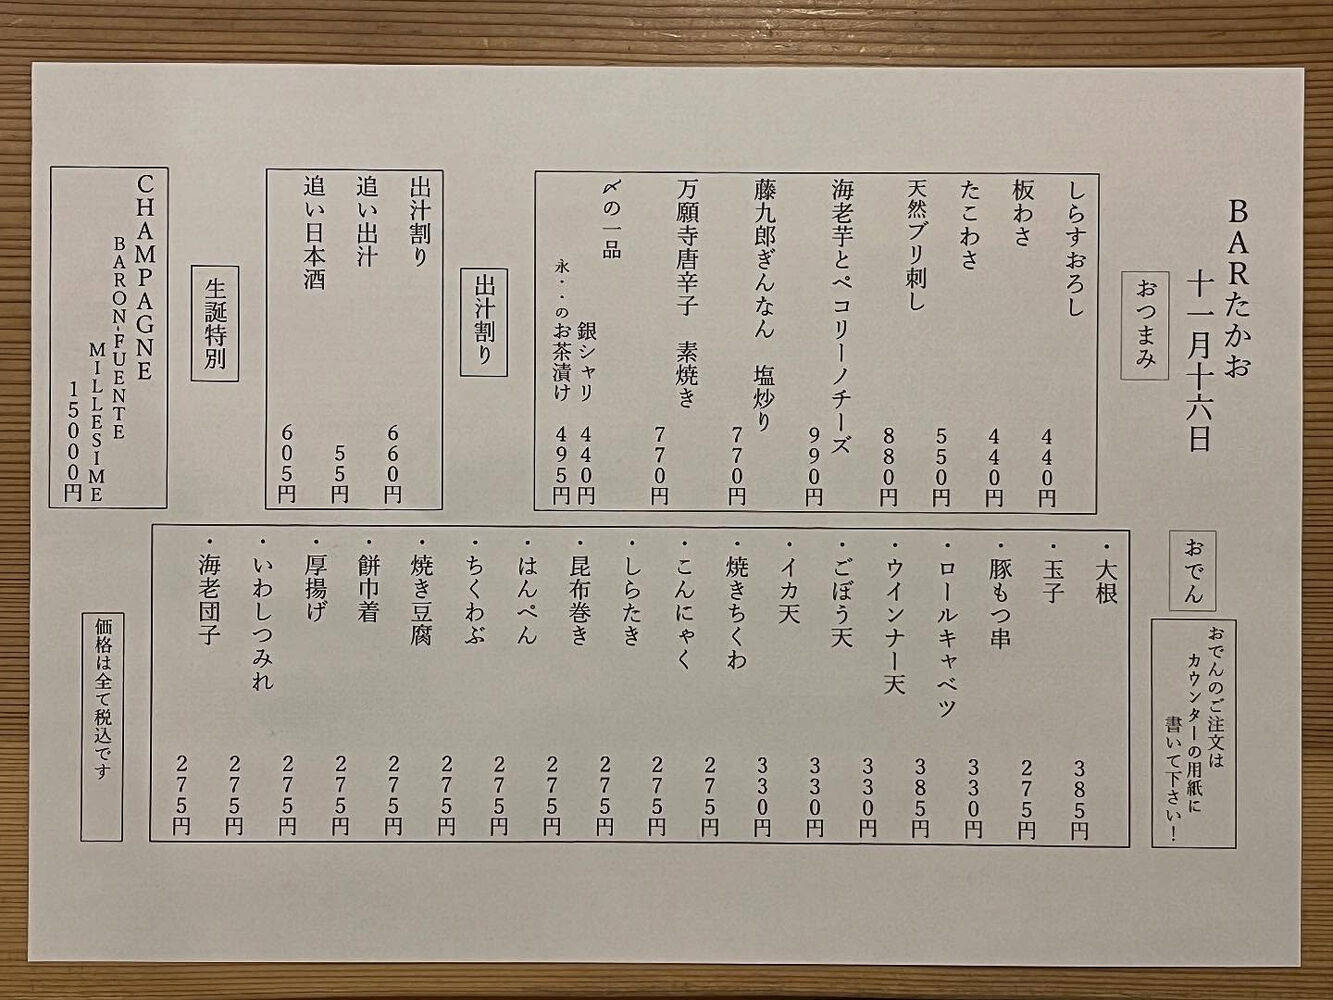 BARたかお
十一月十六日
おつまみ
しらすおろし 440円
板わさ 440円
たこわさ 550円
天然ブリ刺し 880円
海老芋とペコリーノチーズ 990円
藤九郎ぎんなん 塩炒り 770円
万願寺唐辛子 素焼き 770円
〆の一品
銀シャリ 440円
永・・のお茶漬け 495円
出汁割り
出汁割り 660円
追い出汁 55円
追い日本酒 605円
生誕特別
CHAMPAGNE
BARON-FUENTE
MILLESIME
15000円
おでん
おでんのご注文は
カウンターの用紙に
書いて下さい！
・大根 385円
・玉子 275円
・豚もつ串 330円
・ロールキャベツ 385円
・ウインナー天 330円
・ごぼう天 330円
・イカ天 330円
・焼きちくわ 275円
・こんにゃく 275円
・しらたき 275円
・昆布巻き 275円
・はんぺん 275円
・ちくわぶ 275円
・焼き豆腐 275円
・餅巾着 275円
・厚揚げ 275円
・いわしつみれ 275円
・海老団子 275円
価格は全て税込です